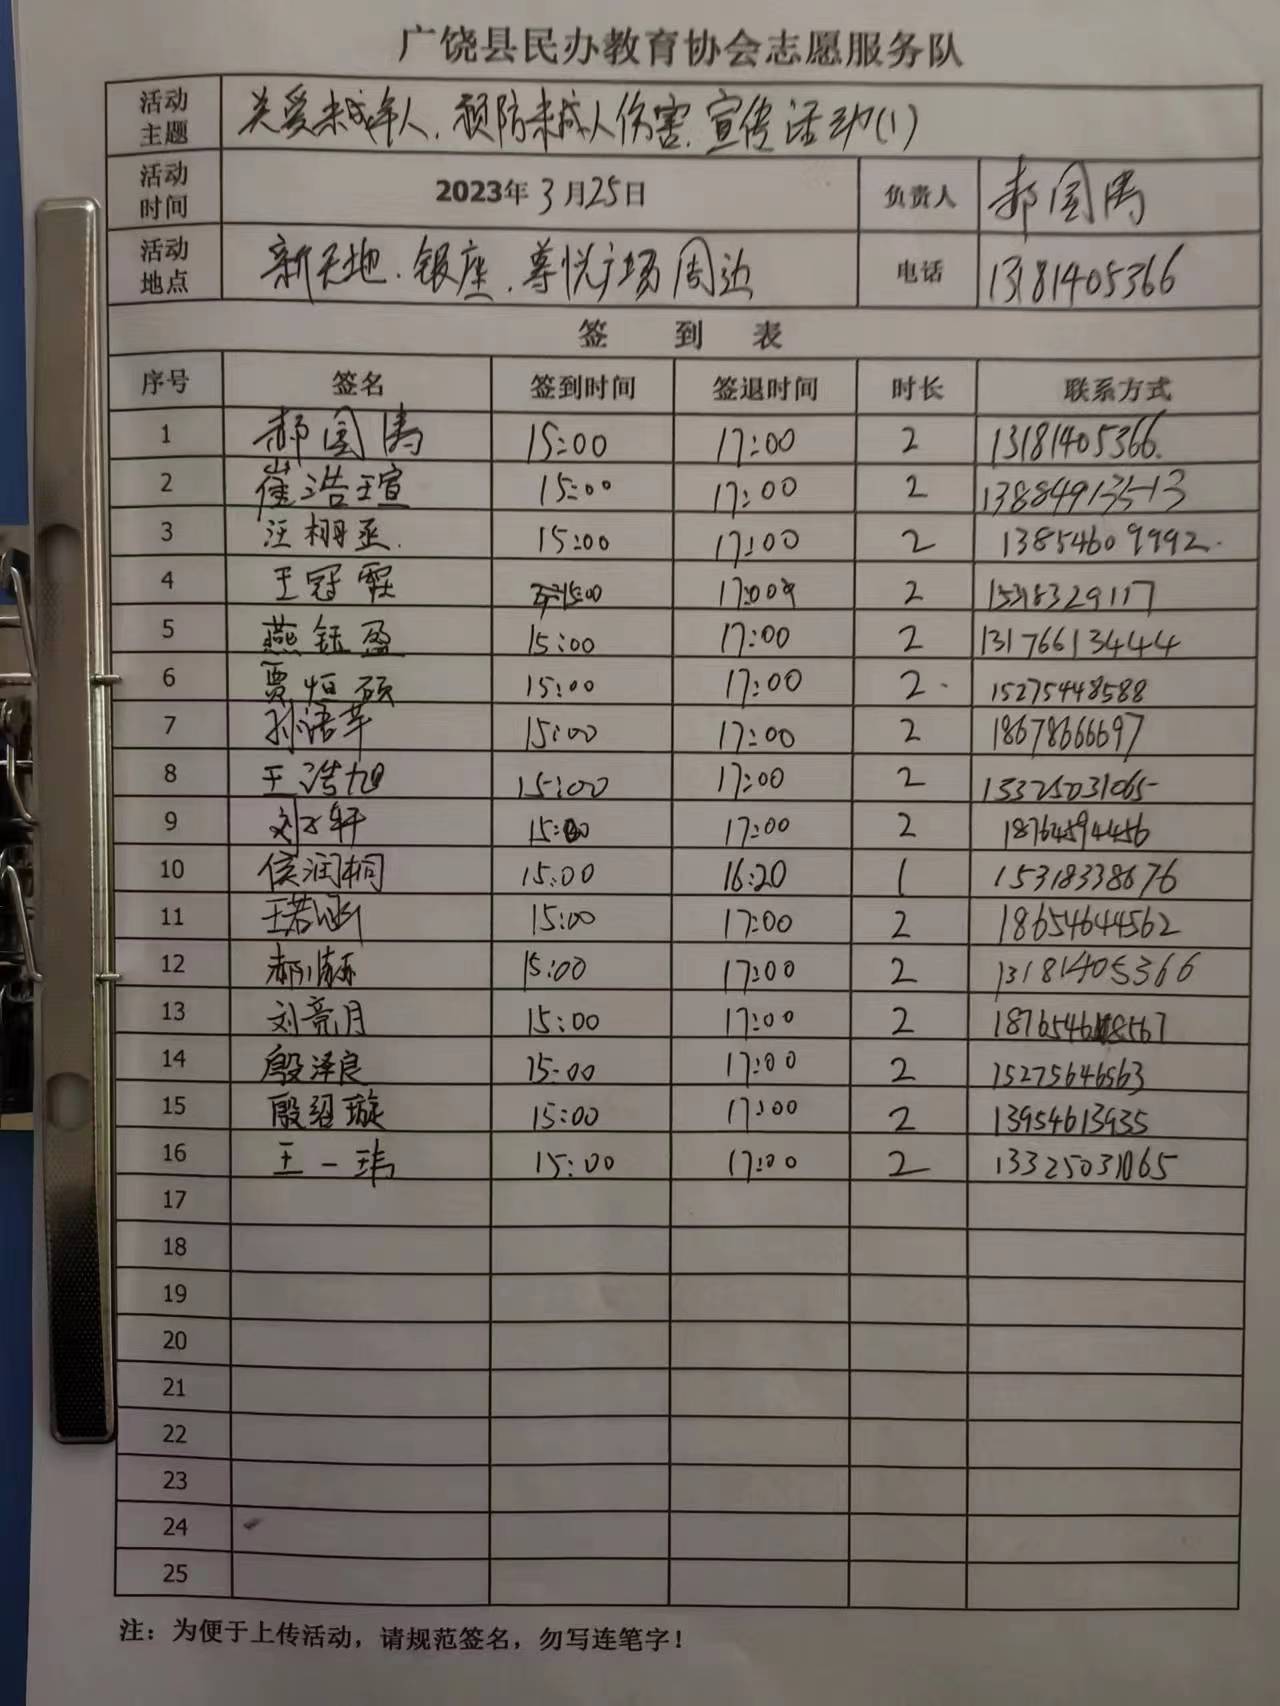 广饶县民办教育协会志愿服务队
活动主题 关爱未成年人.预防未成人伤害.宣传活动(1)
活动时间 2023年3月25日 负责人 郝国涛
活动地点 新天地.银座.尊悦广场周边 电话 13181405366
签到表
序号 签名 签到时间 签退时间 时长 联系方式
1 郝国涛 15:00 17:00 2 13181405366.
2 崔浩瑄 15:00 17:00 2 13884913513
3 汪栩丞. 15:00 17:00 2 13854609992.
4 王冠霖 15:00 17:00 2
5 燕钰盈 15:00 17:00 2 13176613444
6 贾恒硕 15:00 17:00 2 15275448588
7 孙语芊 15:00 17:00 2 18678666697
8 王浩旭 15:00 17:00 2 15325031065
9 刘子轩 15:00 17:00 2 18764594456
10 侯润桐 15:00 16:20 1 15318338676
11 王若涵 15:00 17:00 2 18654644562
12 郝 15:00 17:00 2 13181405366
13 刘亮月 15:00 17:00 2
14 殷泽良 15:00 17:00 2 15275646563
15 殷绍璇 15:00 17:00 2 13954613935
16 王一玮 15:00 17:00 2 13325031065
17
18
19
20
21
22
23
24
25
注：为便于上传活动，请规范签名，勿写连笔字！